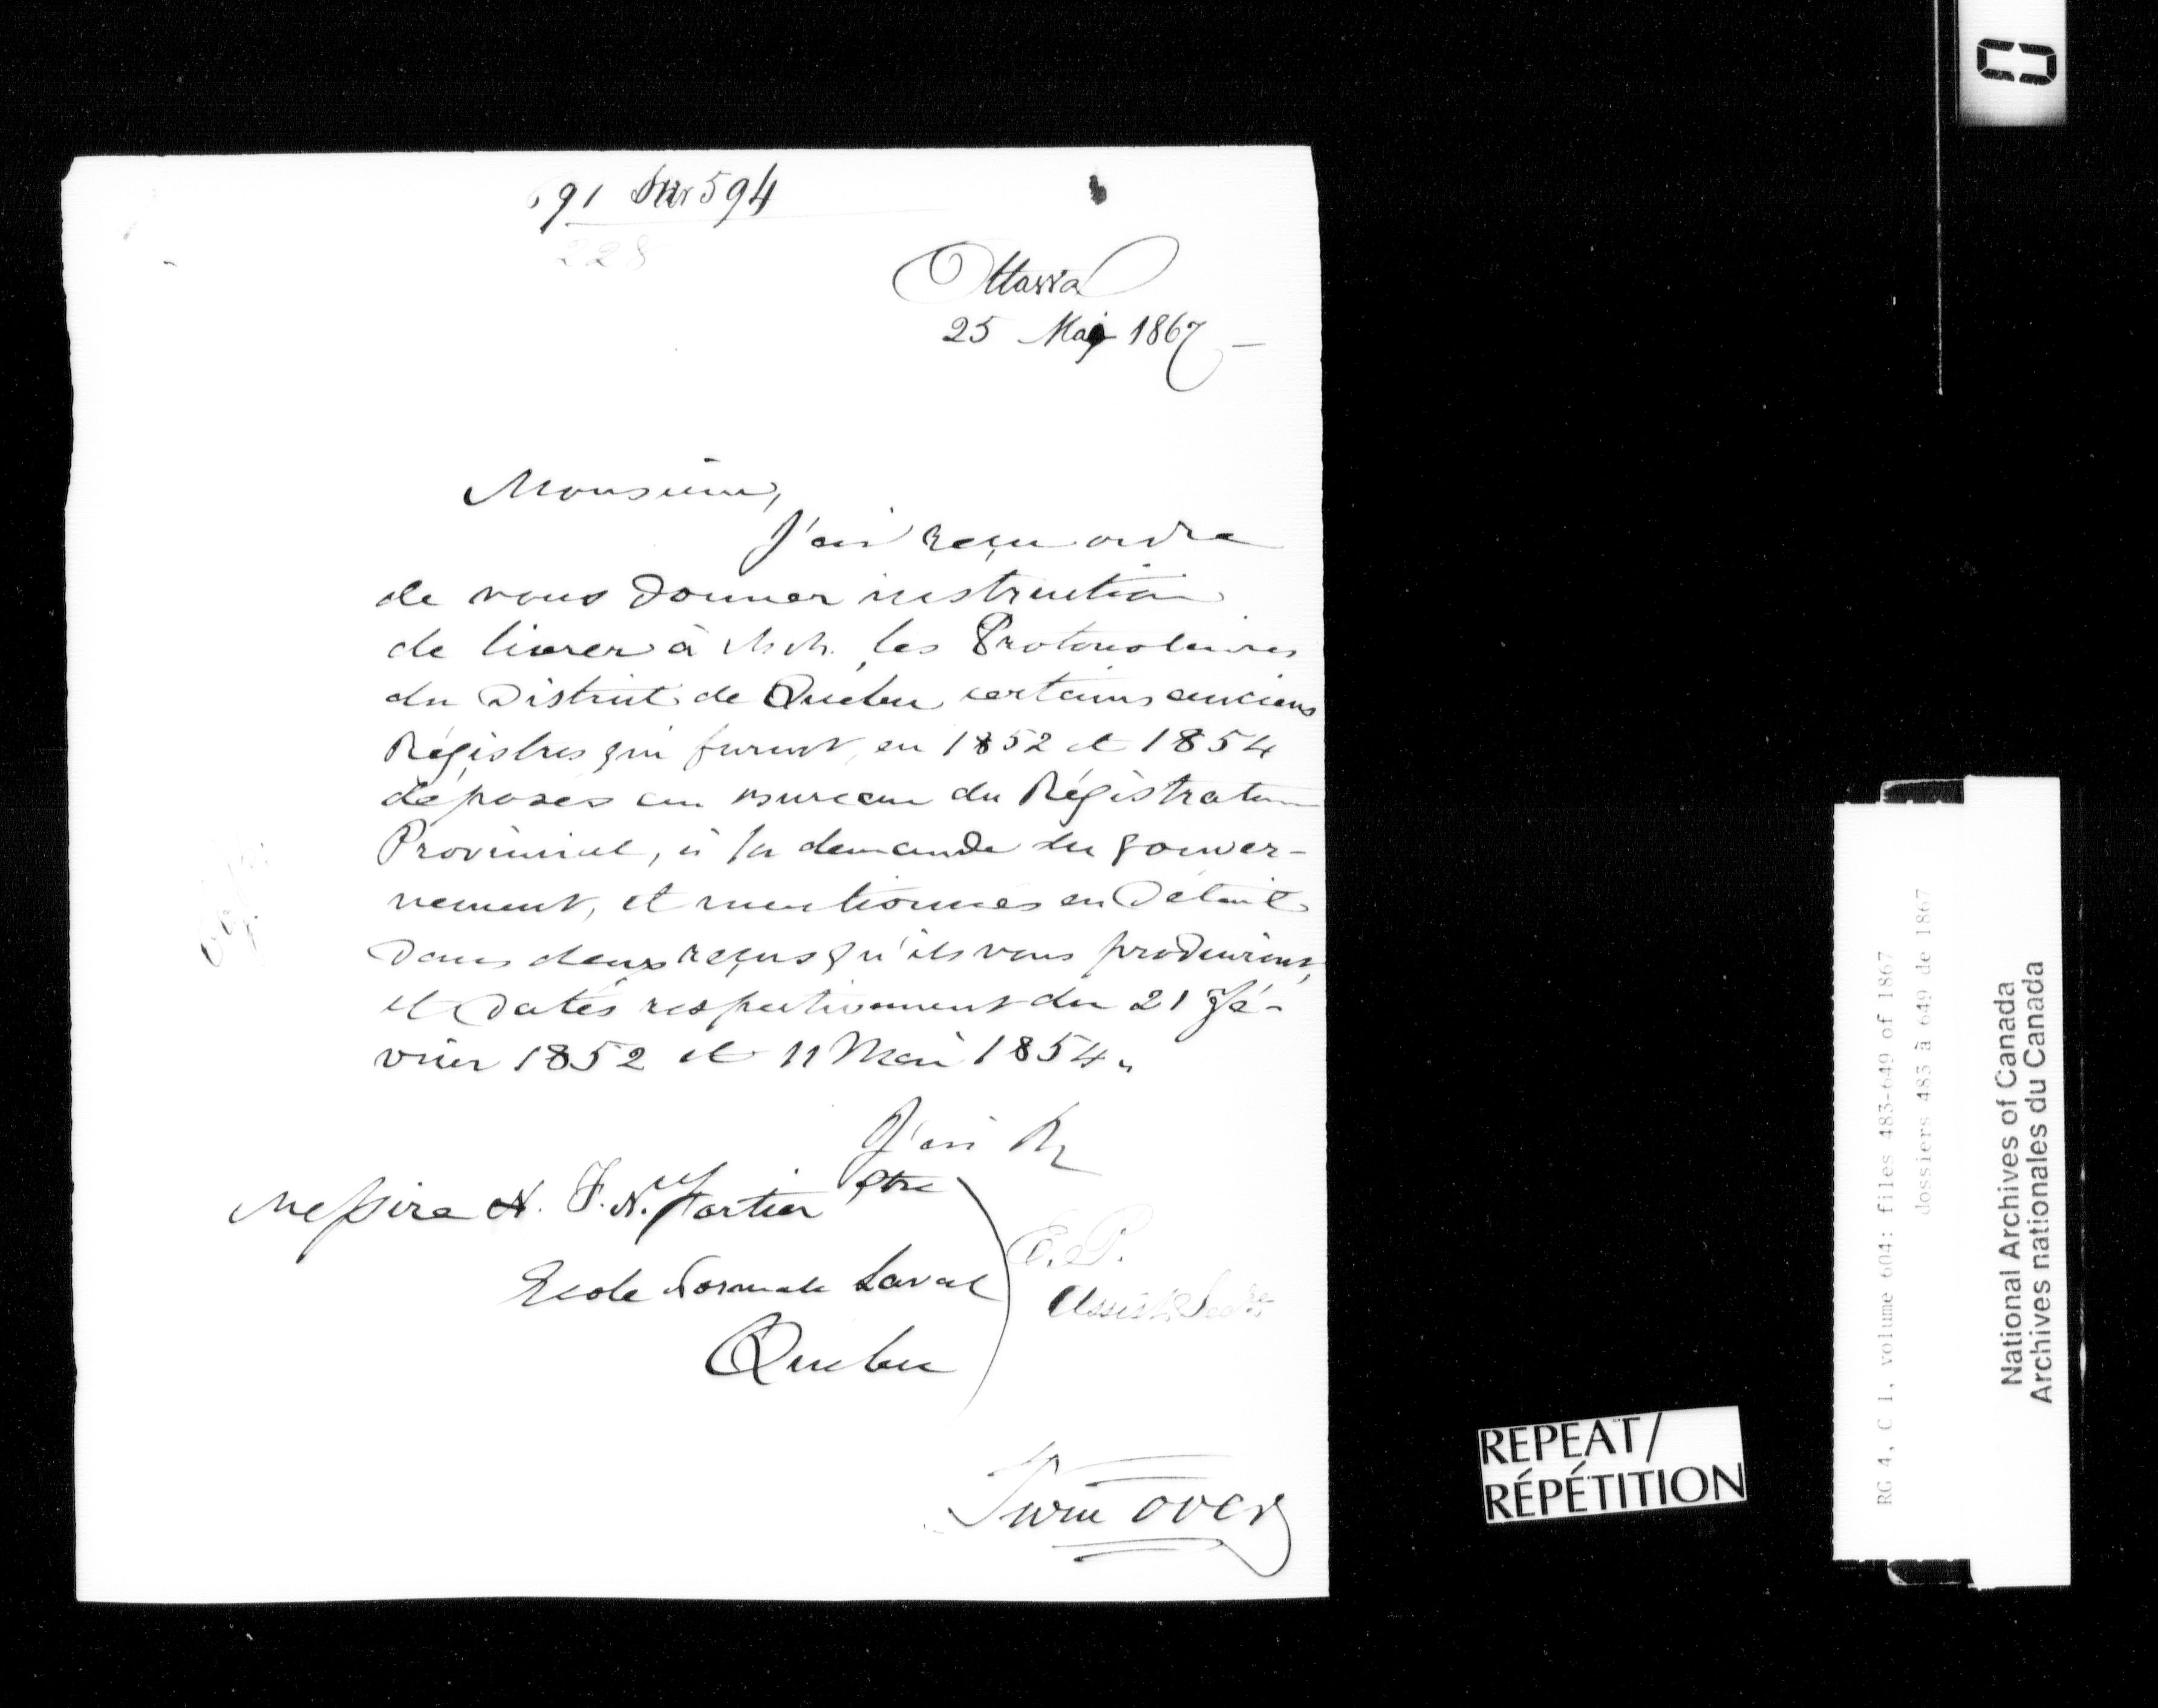 691 Sur 594
228
Ottawa
25 Mai 1867 —
Monsieur,
J'ai reçu ordre
de vous donner instruction
de livrer à MM. les Protonotaires
du District de Québec certains anciens
Régistres qui furent, en 1852 et 1854
déposés au bureau du Régistrateur
Provincial, à la demande du gouver-
nement, et mentionnés en détail
dans deux reçus qu'ils vous produiront,
et datés respectivement du 21 Fé-
vrier 1852 et 11 Mai 1854.
J'ai &c
Messire N. Fortier Ptre
Ecole Normale Laval
Québec
E. P.
Assist. Secre
Turn over
REPEAT/
RÉPÉTITION
RG 4, C 1, volume 604: files 483-649 of 1867
dossiers 483 à 649 de 1867
National Archives of Canada
Archives nationales du Canada